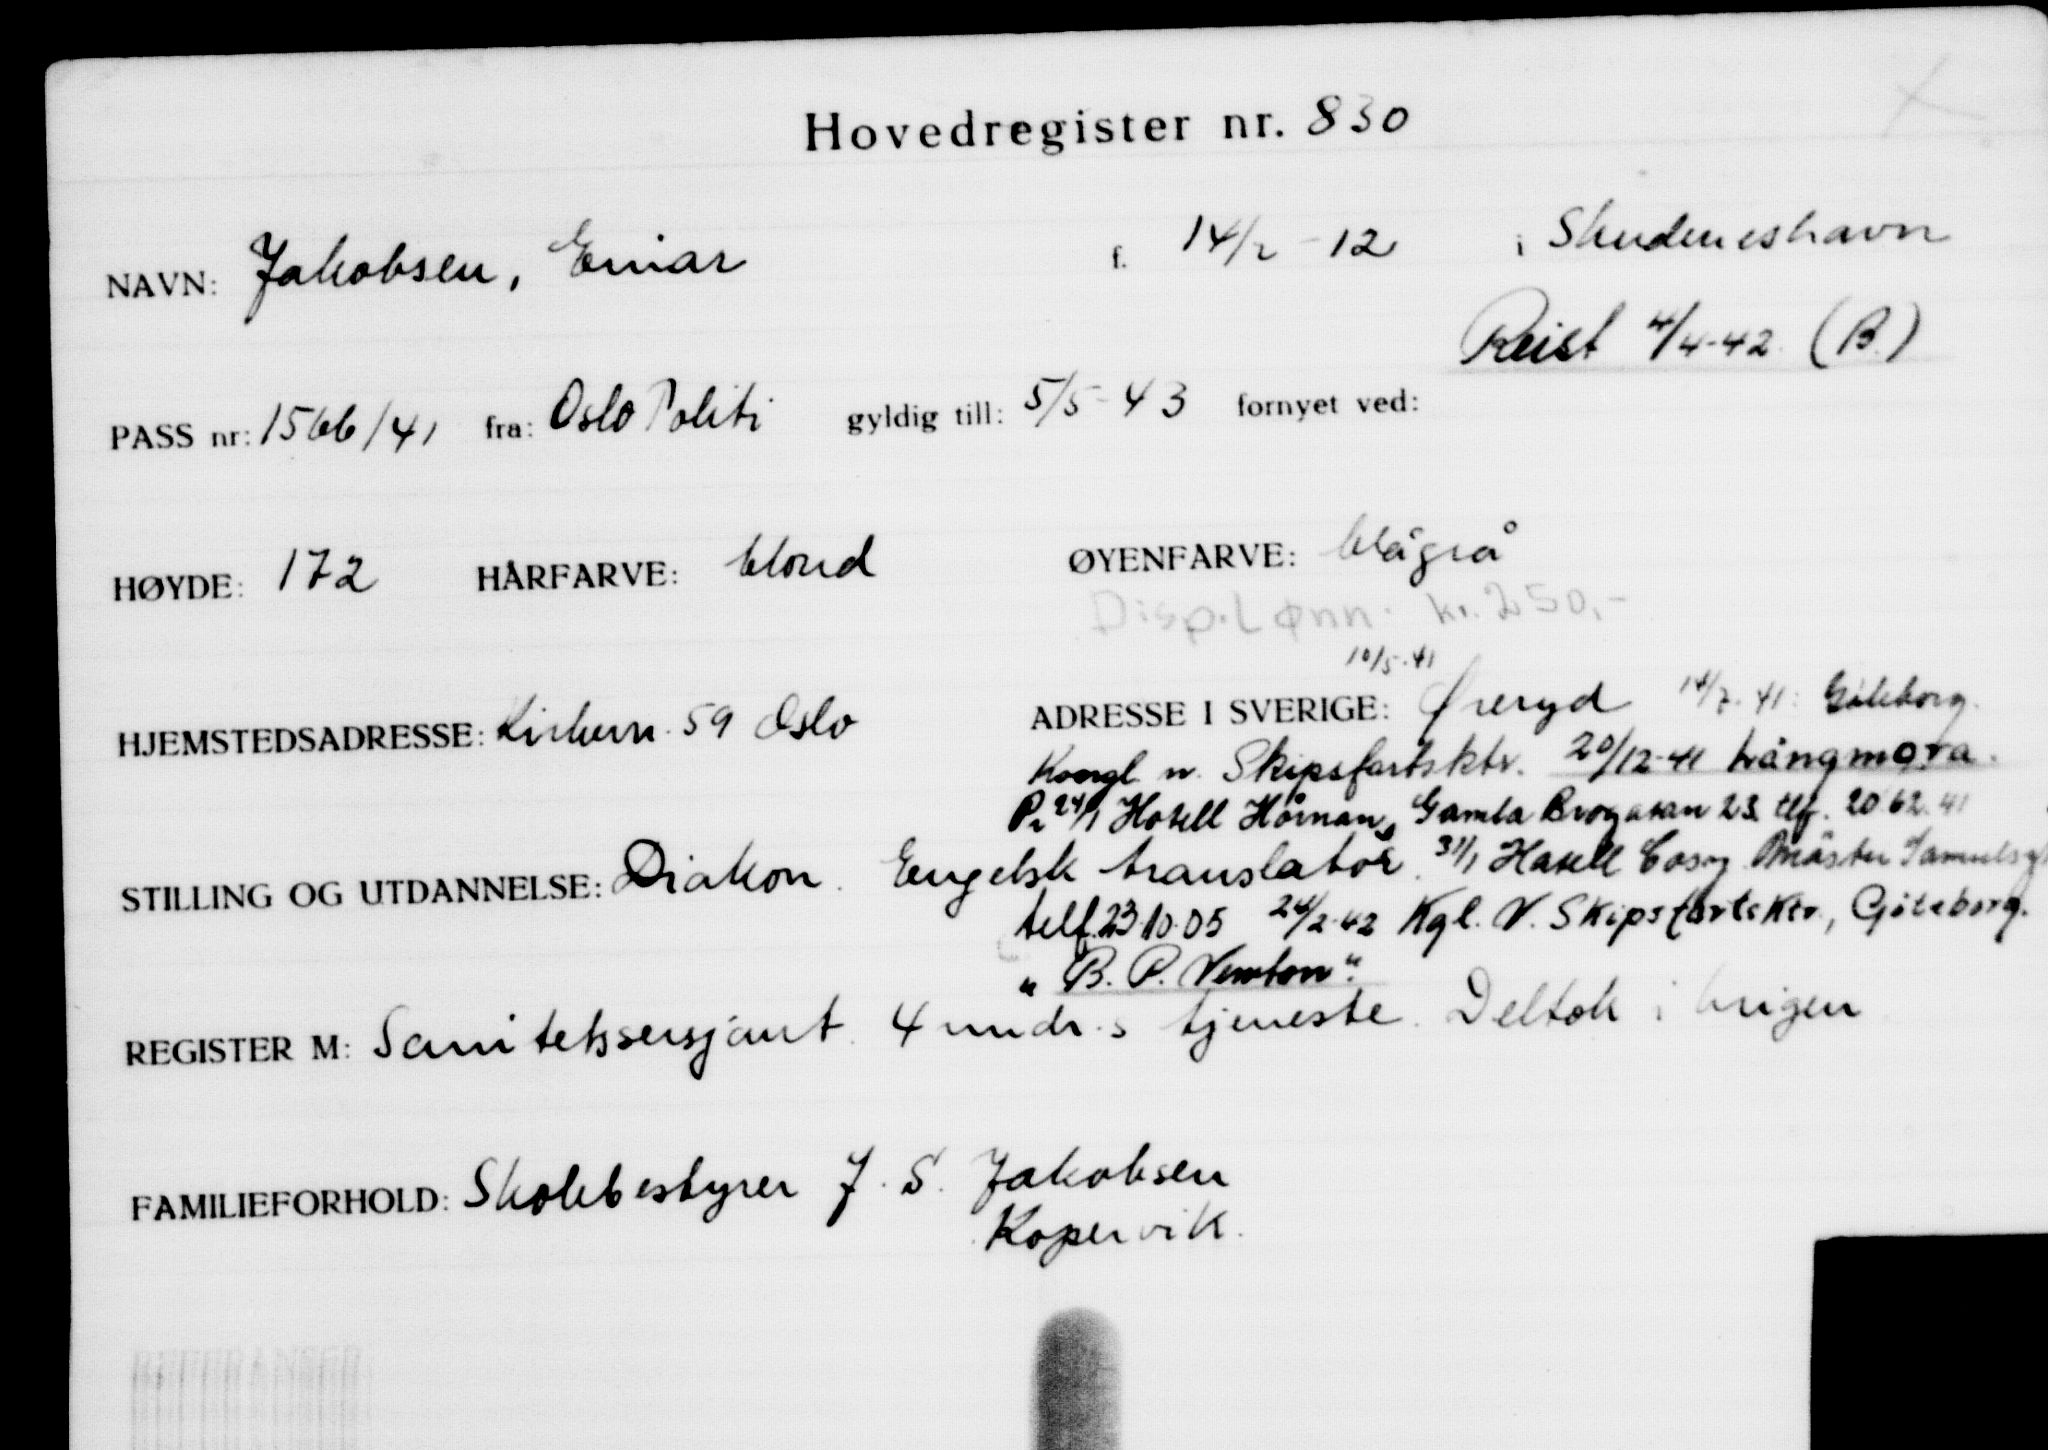 Hovedregister nr. 830
NAVN: Jakobsen, Einar f. 14/2 - 12 i Skudeneshavn
Reist 4/4-42 (B.)
PASS nr: 1566/41 fra: Oslo Politi gyldig till: 5/5 - 43 fornyet ved:
HØYDE: 172 HÅRFARVE: blond ØYENFARVE: blågrå
Disp. Lønn. kr. 250,-
10/5-41
HJEMSTEDSADRESSE: Kirkevn. 59 Oslo ADRESSE I SVERIGE: Øreryd 14/7-41: Göteborg.
Kongl. n. Skipsfartsktr. 20/12-41 Långmora.
24/1 Hotell Hörnan, Gamla Brogatan 23. tlf. 20 62 41
STILLING OG UTDANNELSE: Diakon. Engelsk translatør. 31/1 Hotell Cosy Mäster Samuelsg
telf. 23.10.05 24/2-42 Kgl. N. Skipsfartsktr., Göteborg.
"B. P. Newton".
REGISTER M: Sanitetssersjant. 4 mndr.s tjeneste. Deltok i krigen
FAMILIEFORHOLD: Skolebestyrer J. S. Jakobsen
Kopervik.